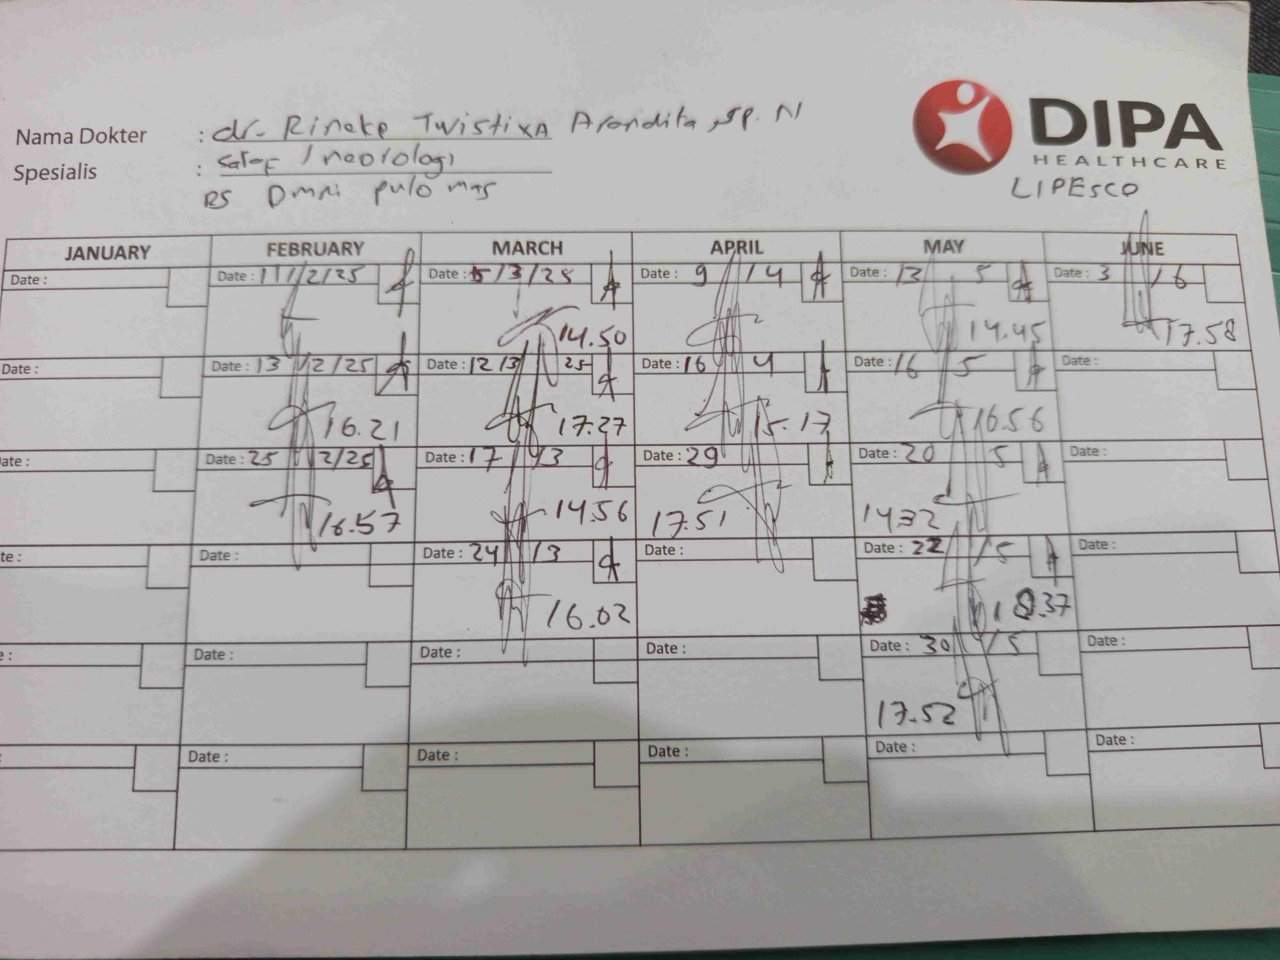 Nama Dokter : dr. Rineke Twistixa Arondita, sp. N
DIPA
HEALTHCARE
LIPESCO
Spesialis : Saraf / neorologi
RS Omni pulo mas
JANUARY FEBRUARY MARCH APRIL MAY JUNE
Date : Date : 11/2/25 Date : 5/3/25 Date : 9/4 Date : 13 5 Date : 3/6
14.50 14.45 17.58
Date : Date : 13/2/25 Date : 12/3 25 Date : 16 4 Date : 16 5 Date :
16.21 17.27 15.17 16.56
ate : Date : 25/2/25 Date : 17/3 Date : 29 Date : 20 5 Date :
16.57 14.56 17.51 1432
te : Date : Date : 24/3 Date : Date : 22/5 Date :
16.02 18.37
: Date : Date : Date : Date : 30/5 Date :
17.52
: Date : Date : Date : Date : Date :